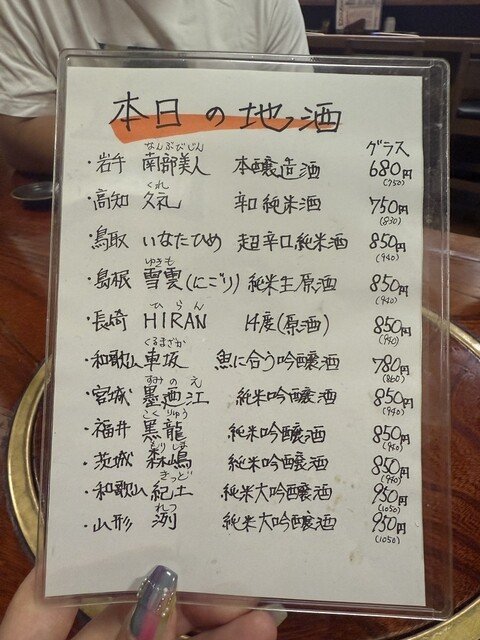 本日の地酒
グラス
なんぶびじん
・岩手 南部美人 本醸造酒 680円
(750)
くれ
・高知 久礼 辛口純米酒 750円
(830)
・鳥取 いなたひめ 超辛口純米酒 850円
(940)
ゆきも
・島根 雪雲(にごり) 純米生原酒 850円
(940)
ひらん
・長崎 HIRAN 14度(原酒) 850円
(940)
くるまざか
・和歌山 車坂 魚に合う吟醸酒 780円
(860)
すみのえ
・宮城 墨廼江 純米吟醸酒 850円
(940)
こくりゅう
・福井 黒龍 純米吟醸酒 850円
(940)
もりしま
・茨城 森嶋 純米吟醸酒 850円
(940)
きっど
・和歌山 紀土 純米大吟醸酒 950円
(1050)
れつ
・山形 洌 純米大吟醸酒 950円
(1050)